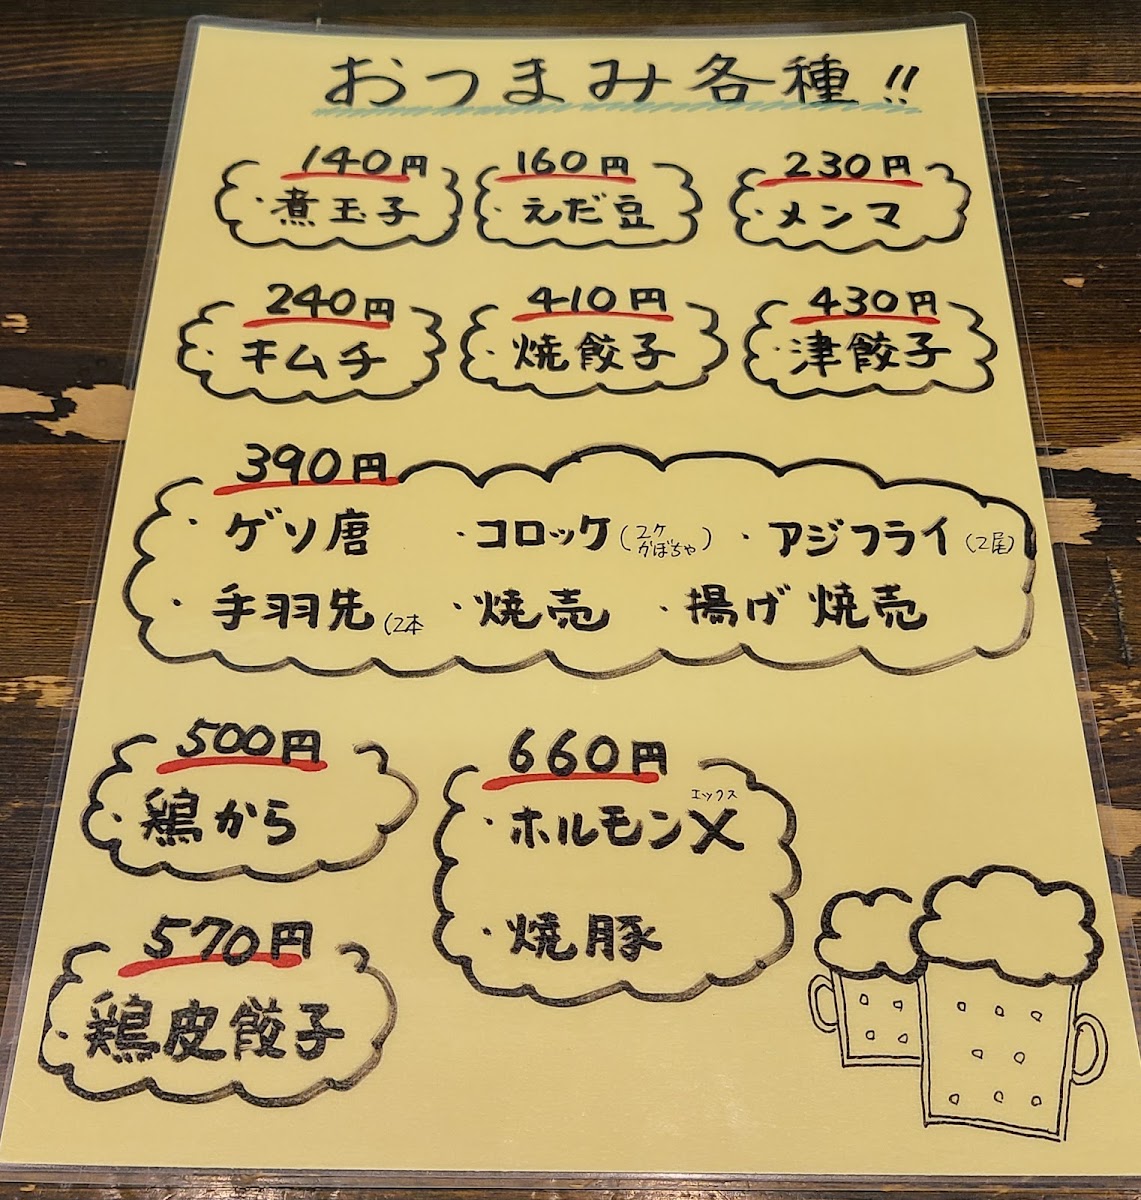 おつまみ各種!!
140円 160円 230円
・煮玉子 ・えだ豆 ・メンマ
240円 410円 430円
・キムチ ・焼餃子 ・津餃子
390円
・ゲソ唐 ・コロッケ(2ケ かぼちゃ) ・アジフライ(2尾)
・手羽先(2本 ・焼売 ・揚げ焼売
500円
・鶏から
660円
エックス
・ホルモンX
・焼豚
570円
・鶏皮餃子